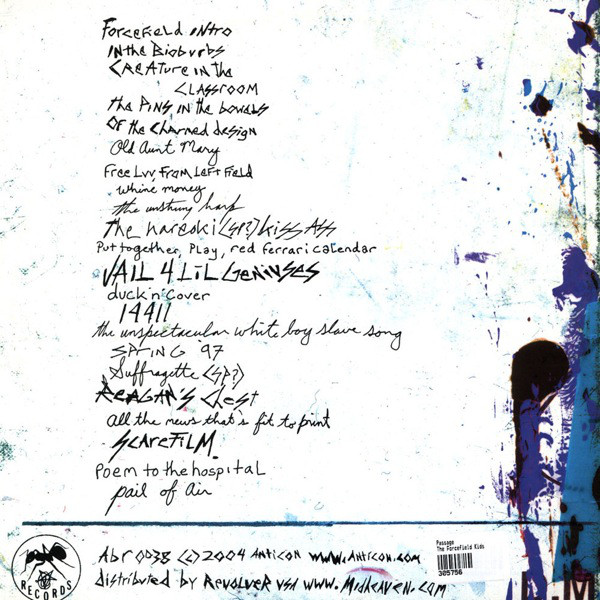 Forcefield intro
in the Bioburbs
Creature in the
Classroom
the Pins in the bowels
Of the Charred design
Old Aunt Mary
Free Lvv, From Left Field
whine money
the unstrung harp
The nareski (sp?) Kiss Ass
Put together, Play, red Ferrari calendar
JAIL 4 LiL Geniuses
duck 'n' Cover
14411
the unspectacular white boy slave song
SPRING '97
Suffragette (sp?)
REAGAN'S Chest
All the news that's fit to print
SCAREFILM.
Poem to the hospital
pail of Air
Abr 0038 (c) 2004 Anticon www.Anticon.com
distributed by Revolver USA www.Midheaven.com
RECORDS
Passage
The Forcefield Kids
305756